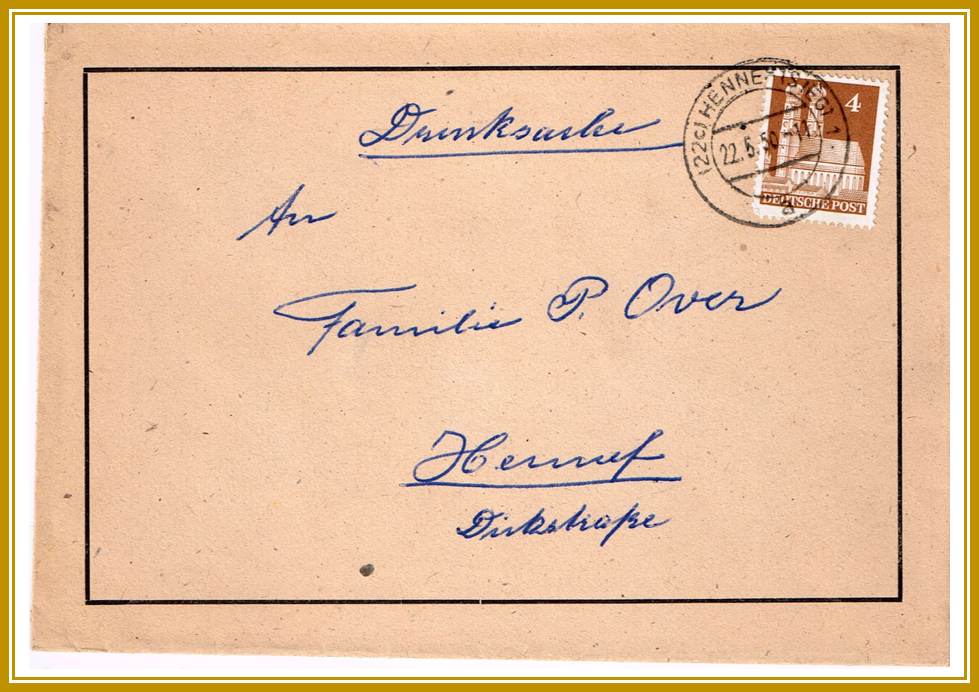 Drucksache
(22c) HENNEF (SIEG) 1
22.5.50
a
4
DEUTSCHE POST
An
Familie P. Over
Hennef